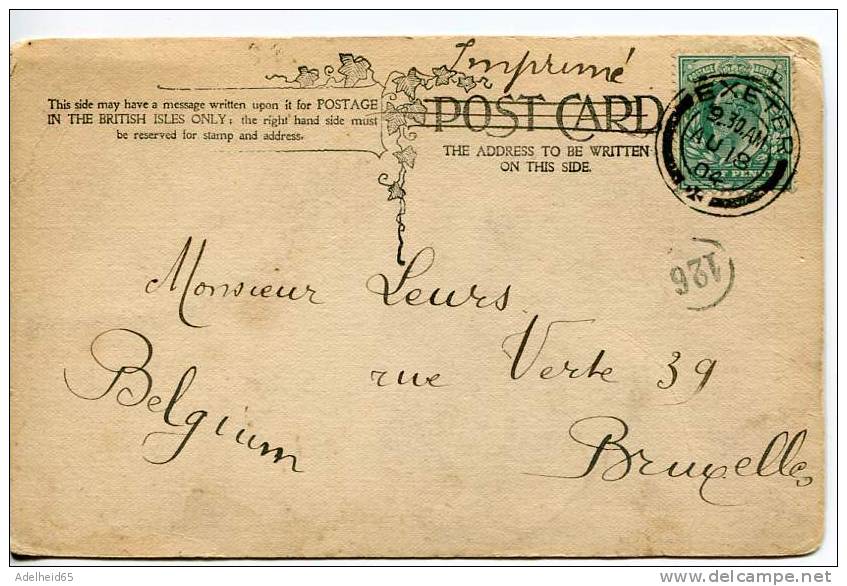 Imprimé
This side may have a message written upon it for POSTAGE
IN THE BRITISH ISLES ONLY; the right hand side must
be reserved for stamp and address.
POST CARD
THE ADDRESS TO BE WRITTEN
ON THIS SIDE.
EXETER
9.30 AM
AU 18
04
126
Monsieur Leurs
rue Verte 39
Bruxelles
Belgium
Adelheid65
delcampe.net